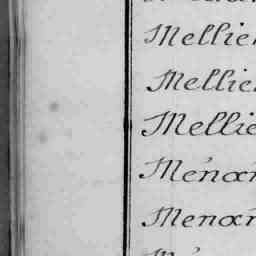 Mellie
Mellie
Mellie
Ménar
Menar